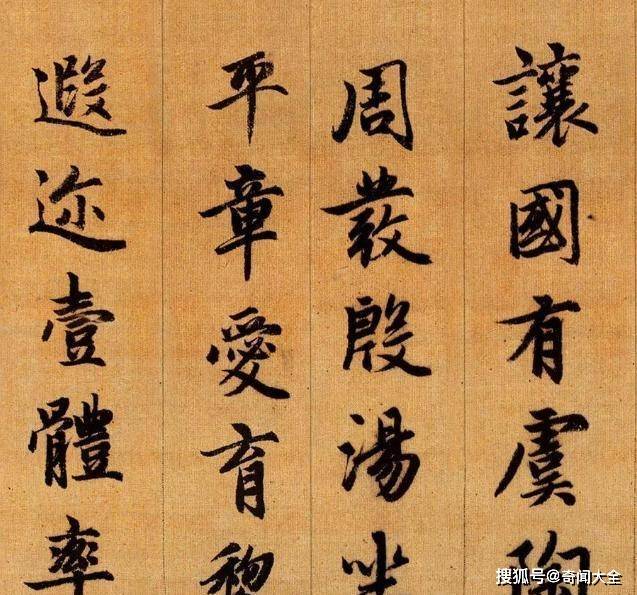 讓國有虞陶
周發殷湯坐
平章愛育
遐迩壹體率
搜狐号@奇闻大全